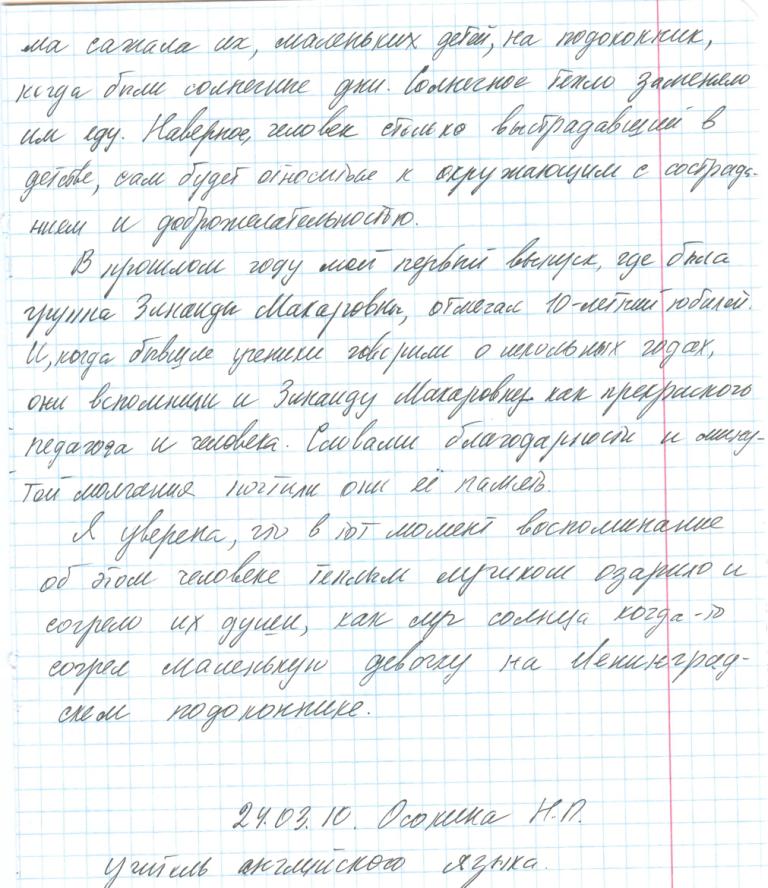 ма сажала их, маленьких детей, на подоконник,
когда были солнечные дни. Солнечное тепло заменяло
им еду. Наверное, человек столько выстрадавший в
детстве, сам будет относиться к окружающим с сострада-
нием и доброжелательностью.
В прошлом году мой первый выпуск, где была
группа Зинаиды Макаровны, отмечал 10-летний юбилей.
И, когда бывшие ученики говорили о школьных годах,
они вспомнили и Зинаиду Макаровну как прекрасного
педагога и человека. Словами благодарности и мину-
той молчания почтили они её память.
Я уверена, что в тот момент воспоминание
об этом человеке теплым лучиком озарило и
согрело их души, как луч солнца когда-то
согрел маленькую девочку на Ленинград-
ском подоконнике.
24.03.10. Осокина Н.П.
учитель английского языка.